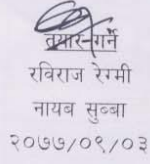 तयार गर्ने
रविराज रेग्मी
नायब सुब्बा
२०७७/०९/०३